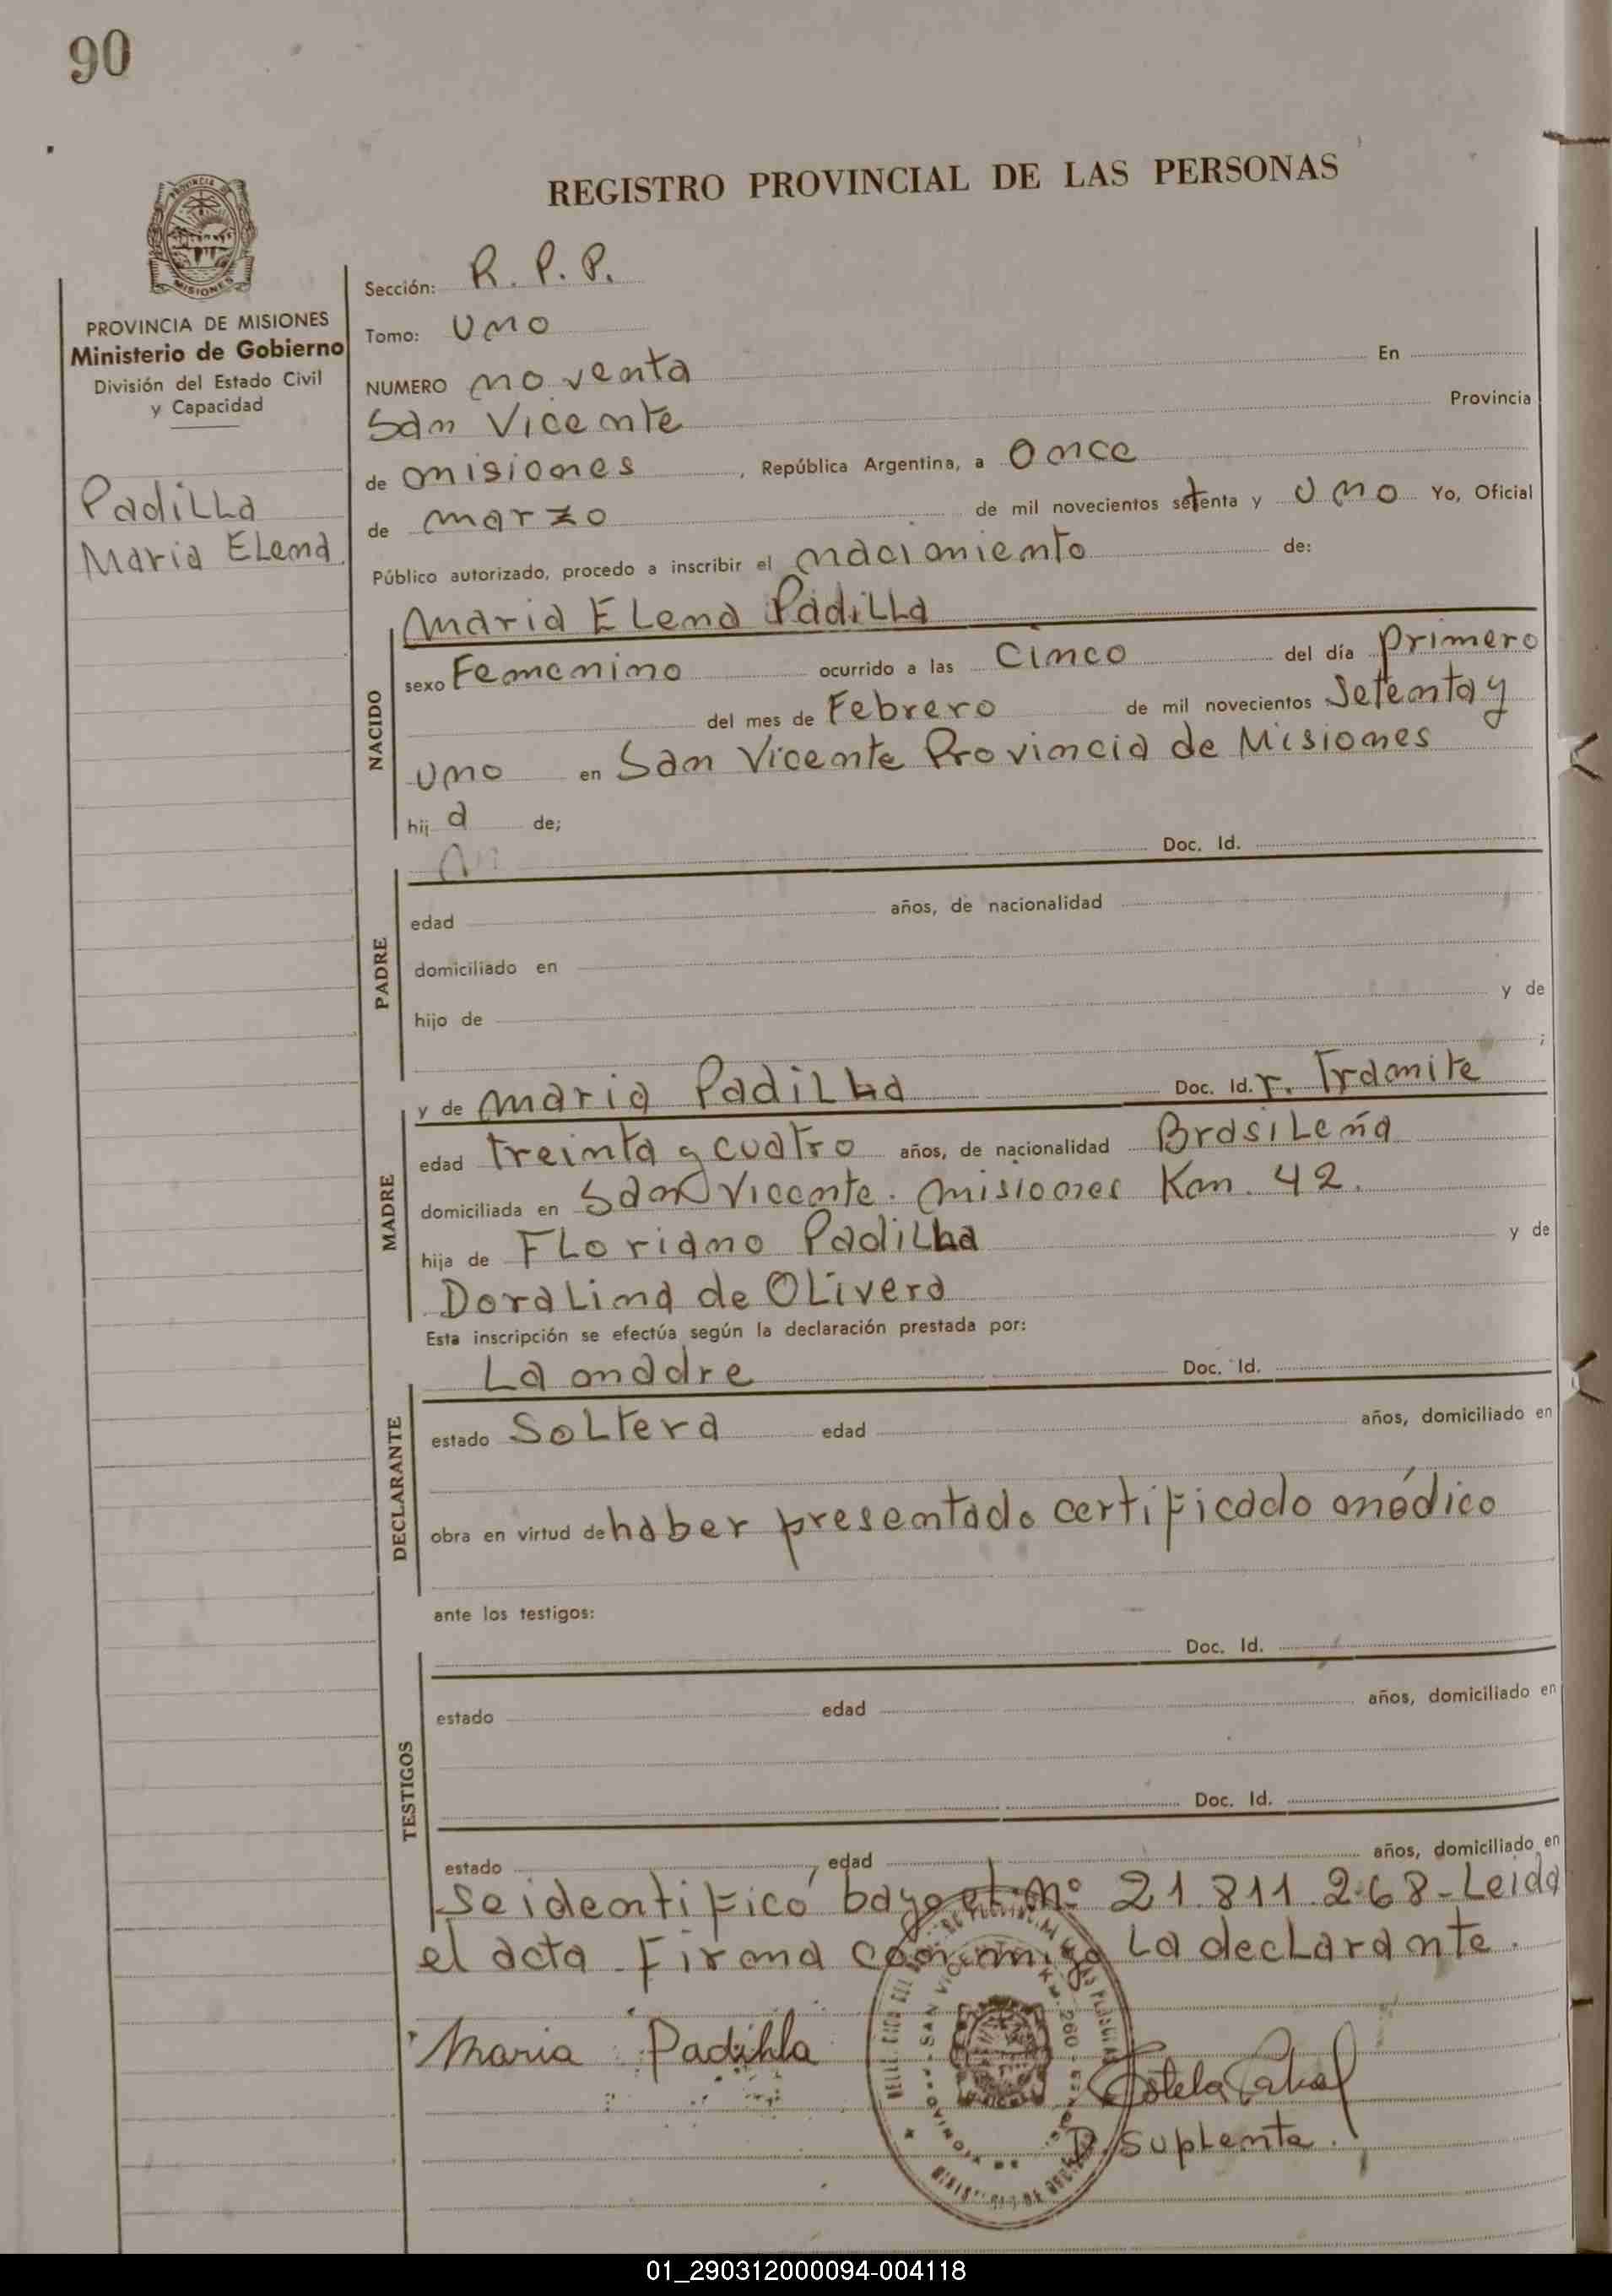 90
REGISTRO PROVINCIAL DE LAS PERSONAS
PROVINCIA DE
MISIONES
PROVINCIA DE MISIONES
Ministerio de Gobierno
División del Estado Civil
y Capacidad
Padilla
Maria Elena
Sección: R. P. P.
Tomo: uno
NUMERO noventa En
San Vicente Provincia
de misiones, República Argentina, a once
de marzo de mil novecientos setenta y uno Yo, Oficial
Público autorizado, procedo a inscribir el nacimiento de:
NACIDO
Maria Elena Padilla
sexo Femenino ocurrido a las cinco del día primero
del mes de Febrero de mil novecientos setenta y
uno en San Vicente Provincia de Misiones
hij a de;
Doc. Id.
PADRE
edad años, de nacionalidad
domiciliado en
hijo de y de
;
MADRE
y de maria Padilha Doc. Id. r. Tramite
edad treinta y cuatro años, de nacionalidad Brasileña
domiciliada en San Vicente. misiones Km. 42.
hija de Floriano Padilha y de
Doralina de Olivera
Esta inscripción se efectúa según la declaración prestada por:
DECLARANTE
La madre Doc. Id.
estado Soltera edad años, domiciliado en
obra en virtud de haber presentado certificado médico
ante los testigos:
TESTIGOS
Doc. Id.
estado edad años, domiciliado en
Doc. Id.
estado edad años, domiciliado en
se identificó bayo el Nº 21.811.268-Leida
el acta firma conmigo la declarante.
Maria Padilha
Estela Cabral
D. suplente.
SAN VICENTE
260
01_290312000094-004118